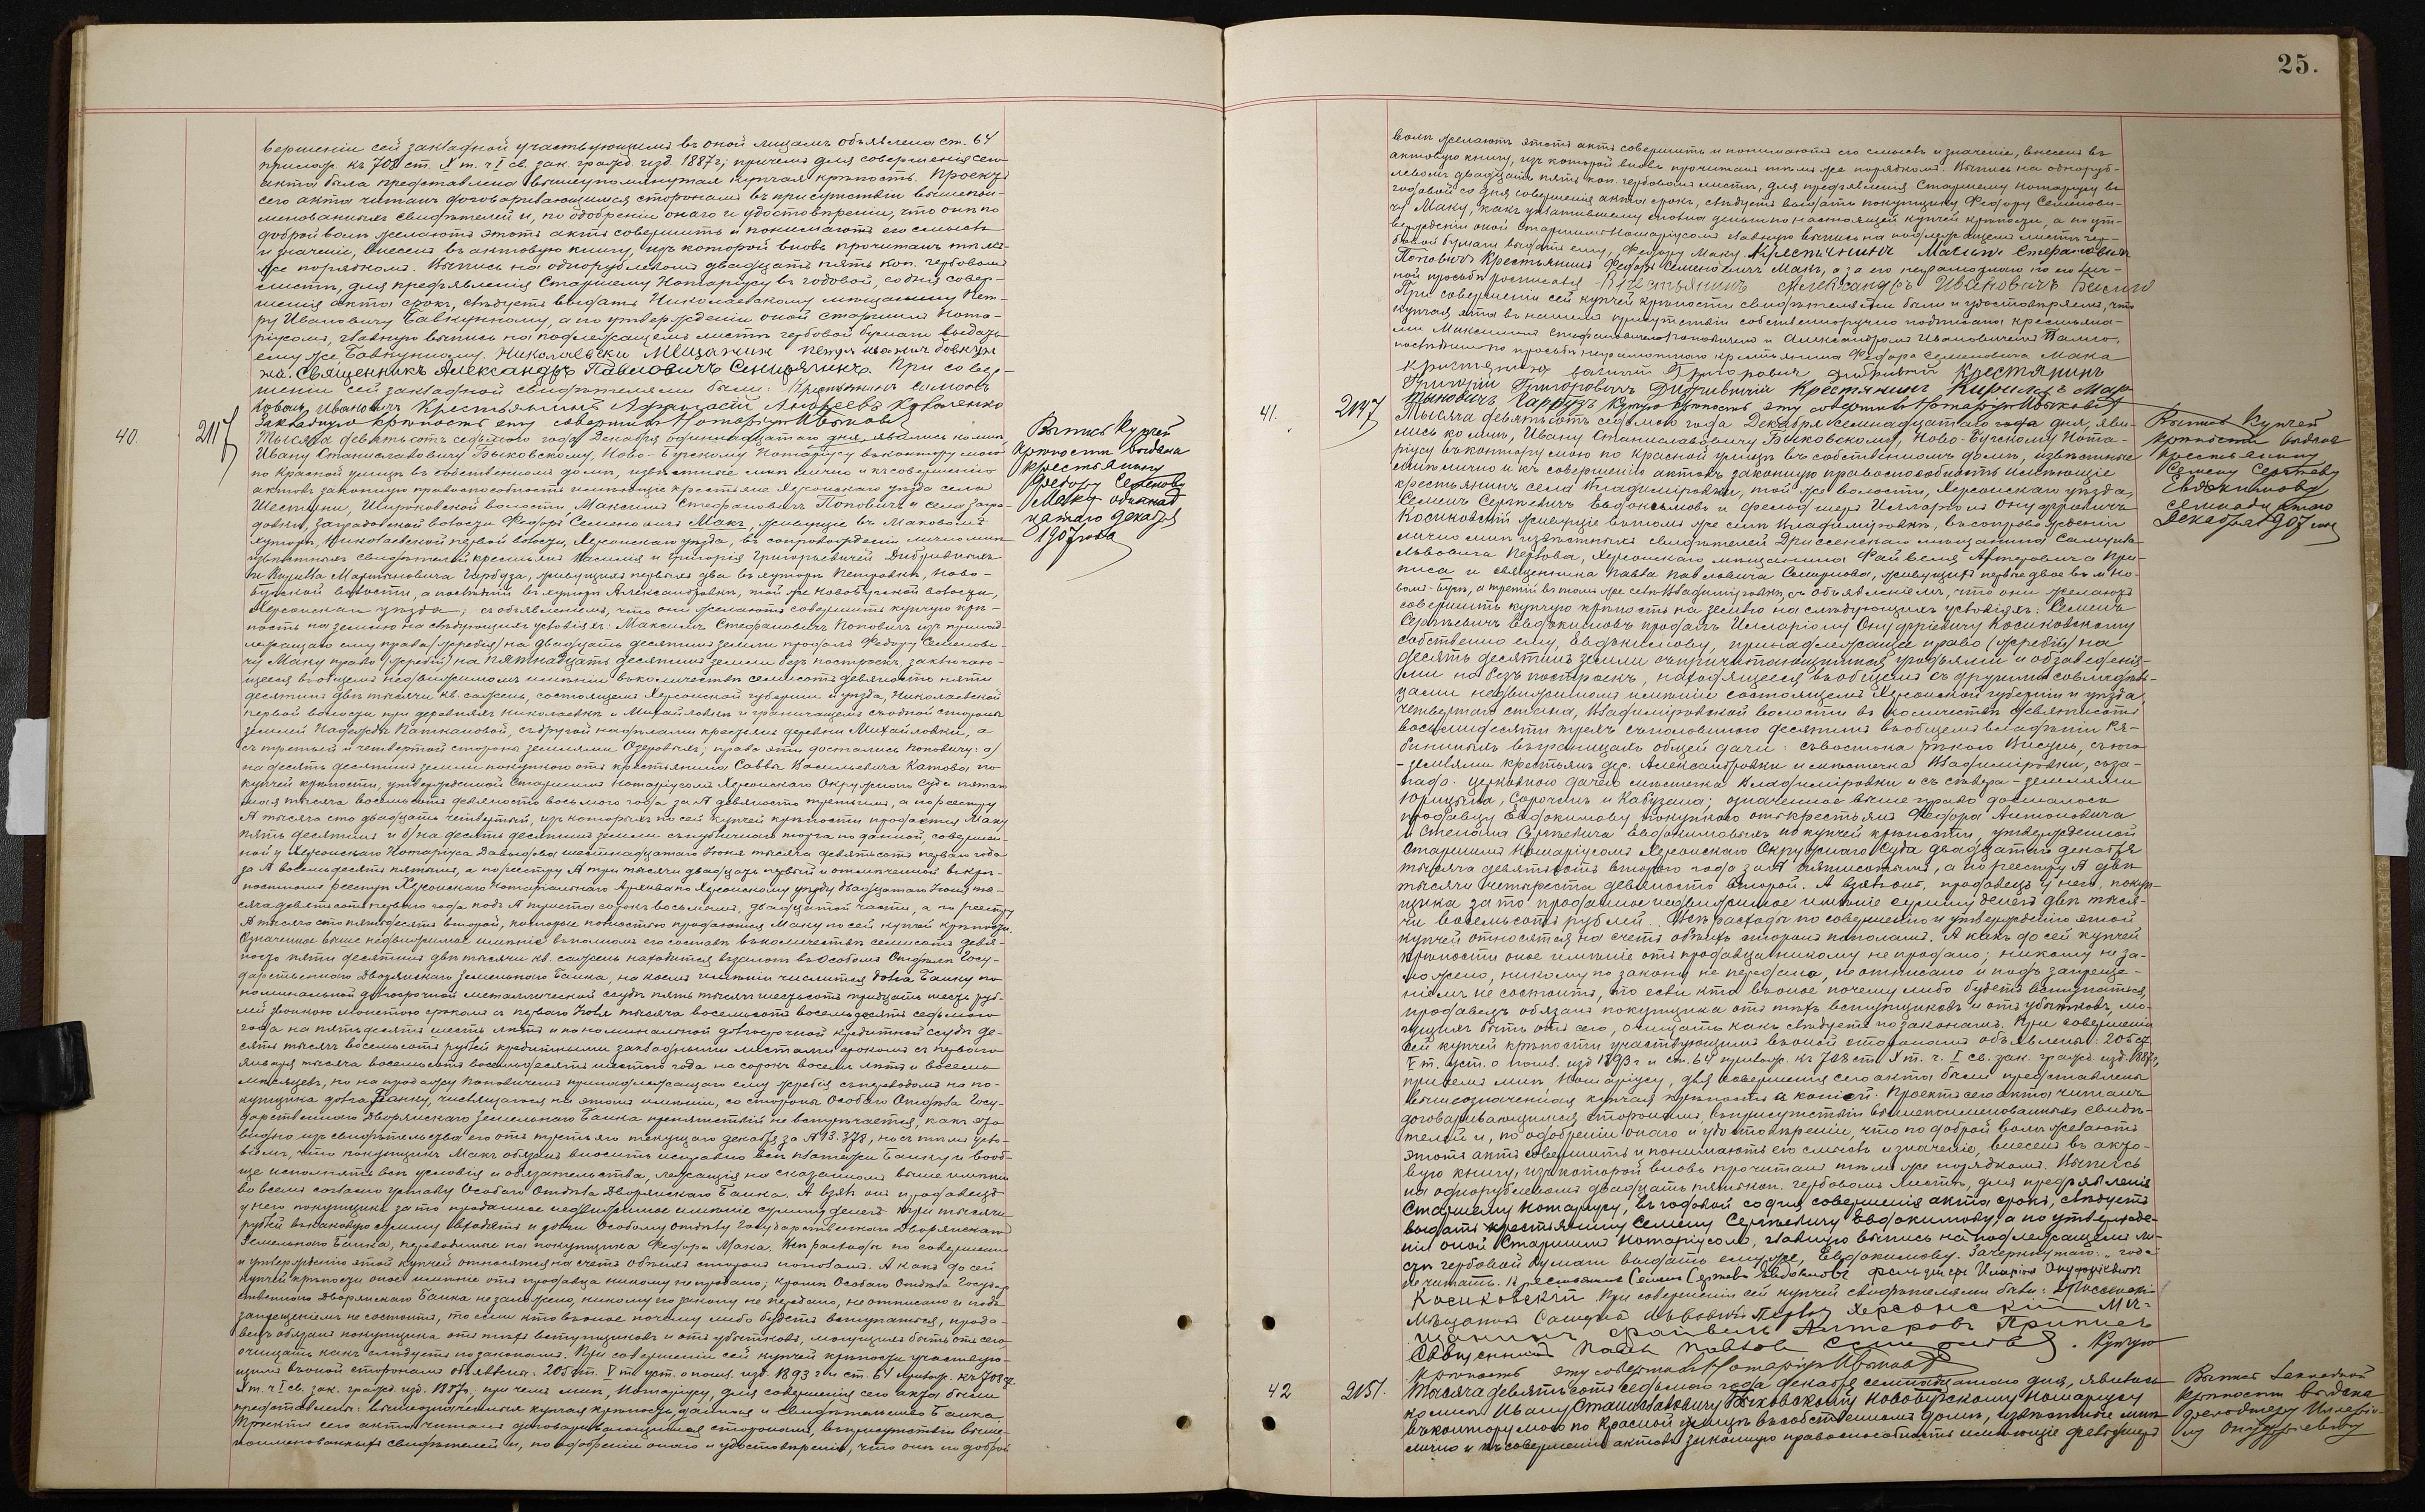 25.
вершеніи сей закладной участвующимъ въ оной лицамъ объявлена ст. 64
прилож. къ 708 ст. X т. ч I св. зак. гражд. изд. 1887 г; причемъ для совершенія сего
акта была представлена вышеупомянутая купчая крѣпость. Проектъ
сего акта читанъ договаривающимся сторонамъ въ присутствіи вышепои-
менованныхъ свидѣтелей и, по одобреніи онаго и удостовѣреніи, что они по
доброй волѣ желаютъ этотъ актъ совершить и понимаютъ его смыслъ
и значеніе, внесенъ въ актовую книгу, изъ которой вновь прочитанъ тѣмъ
же порядкомъ. Выпись на однорублевомъ двадцать пять коп. гербовомъ
листѣ, для предъявленія Старшему Нотаріусу въ годовой, со дня совер-
шенія акта срокъ, слѣдуетъ выдать Николаевскому мѣщанину Пет-
ру Ивановичу Бавкунному, а по утвержденіи оной старшимъ Нота-
ріусомъ, главную выпись на подлежащемъ листѣ гербовой бумаги выдать
ему же Бавкунному. Николаевски Мещанин Петръ
Священникъ Александръ Павловичъ Синицянинъ. При совер-
шеніи сей закладной свидѣтелями были: Крестьянинъ
Иванович Крестьянинъ Афанасій Андреевъ Коваленко
Закладную крѣпость эту совершилъ Нотаріусъ Быковскій
40. 2117
Тысяча девятьсотъ седьмого года Декабря одиннадцатаго дня, явились ко мнѣ,
Ивану Станиславовичу Быковскому, Ново-Бугскому Нотаріусу въ контору мою
по Красной улицѣ въ собственномъ домѣ, извѣстные мнѣ лично и къ совершенію
актовъ законную правоспособность имѣющіе крестьяне Херсонскаго уѣзда села
Шестерни, Широковской волости, Максимъ Стефановичъ Поповичъ и села Загра-
довки, Заградовской волости Федоръ Семеновичъ Макъ, живущіе въ Маковомъ
хуторѣ, Николаевской первой волости, Херсонскаго уѣзда, въ сопровожденіи лично мнѣ
извѣстныхъ свидѣтелей крестьянъ Василія и Григорія Григорьевичей Дибривныхъ
и Кирилла Мартыновича Гарбуза, живущихъ первыхъ два въ хуторѣ Петровкѣ, Ново-
бугской волости, а послѣдній въ хуторѣ Александровкѣ, той же Новобугской волости,
Херсонскаго уѣзда; съ объявленіемъ, что они желаютъ совершить купчую крѣ-
пость на землю на слѣдующихъ условіяхъ: Максимъ Стефановичъ Поповичъ изъ принад-
лежащаго ему права (жребія) на двадцать десятинъ земли продалъ Федору Семенови-
чу Маку право (жребій) на пятнадцать десятинъ земли безъ построекъ, заключаю-
щееся въ общемъ недвижимомъ имѣніи въ количествѣ семисотъ девяносто пяти
десятинъ двѣ тысячи кв. сажень, состоящемъ Херсонской губерніи и уѣзда, Николаевской
первой волости при деревняхъ Николаевкѣ и Михайловкѣ и граничащемъ съ одной стороны
землей Надежды Капкановой, съ другой надѣлами крестьянъ деревни Михайловки, а
съ третьей и четвертой стороны землями Озеровыхъ; право это досталось Поповичу: а)
на десять десятинъ земли покупкою отъ крестьянина Саввы Васильевича Катова, по
купчей крѣпости, утвержденной Старшимъ Нотаріусомъ Херсонскаго Окружнаго Суда пятаго
мая тысяча восемьсотъ девяносто восьмого года за № девяносто третьимъ, а по реестру
№ тысяча сто двадцать четвертый, изъ которыхъ по сей купчей крѣпости продается Маку
пять десятинъ и б) на десять десятинъ земли съ публичнаго торга по данной, совершен-
ной у Херсонскаго Нотаріуса Давыдова шестнадцатаго Іюня тысяча девятьсотъ перваго года
за № восемьдесятъ пятымъ, а по реестру № три тысячи двадцать первый и отмѣченной въ крѣ-
постномъ реестрѣ Херсонскаго Нотаріальнаго Архива по Херсонскому уѣзду двадцатаго Іюня ты-
сяча девятьсотъ перваго года подъ № триста сорокъ восьмымъ, двадцатой части, а по реестру
№ тысяча сто пятьдесятъ второй, которые полностью продаются Маку по сей купчей крѣпости.
Означенное выше недвижимое имѣніе въ полномъ его составѣ въ количествѣ семисотъ девя-
носто пяти десятинъ двѣ тысячи кв. сажень находится въ залогѣ въ Особомъ Отдѣлѣ Госу-
дарственнаго Дворянскаго Земельнаго Банка, на коемъ имѣніи числится долга Банку по
номинальной долгосрочной металлической ссудѣ пять тысячъ шестьсотъ тридцать шесть руб-
лей звонкою монетою срокомъ съ перваго Іюля тысяча восемьсотъ восемьдесятъ седьмого
года на пятьдесятъ шесть лѣтъ и по номинальной долгосрочной кредитной ссудѣ де-
сять тысячъ восемьсотъ рублей кредитными закладными листами срокомъ съ перваго
января тысяча восемьсотъ восемьдесятъ шестого года на сорокъ восемь лѣтъ и восемь
мѣсяцевъ, но на продажу Поповичемъ принадлежащаго ему жребія съ переводомъ на по-
купщика долга Банку, числящагося на этомъ имѣніи, со стороны Особаго Отдѣла Госу-
дарственнаго Дворянскаго Земельнаго Банка препятствій не встрѣчается, какъ это
видно изъ свидѣтельства его отъ третьяго текущаго декабря за № 13.378, но съ тѣмъ усло-
віемъ, что покупщикъ Макъ обязанъ вносить исправно всѣ платежи Банку и вооб-
ще исполнять всѣ условія и обязательства, лежащія на сказанномъ выше имѣніи
во всемъ согласно уставу Особаго Отдѣла Дворянскаго Банка. А взялъ онъ продавецъ
у него покупщика за то проданное недвижимое имѣніе сумму денегъ три тысячи
рублей въ каковую сумму входятъ и долги Особому отдѣлу Государственнаго Дворянскаго
Земельнаго Банка, переводимые на покупщика Федора Мака. Всѣ расходы по совершенію
и утвержденію этой купчей относятся на счетъ обѣихъ сторонъ пополамъ. А какъ до сей
купчей крѣпости оное имѣніе отъ продавца никому не продано; кромѣ Особаго Отдѣла Государ-
ственнаго Дворянскаго Банка не заложено, никому по закону не передано, не отписано и подъ
запрещеніемъ не состоитъ, то если кто въ оное почему либо будетъ вступаться, прода-
вецъ обязанъ покупщика отъ тѣхъ вступщиковъ и отъ убытковъ, могущихъ быть отъ сего,
очищать какъ слѣдуетъ по законамъ. При совершеніи сей купчей крѣпости участвую-
щимъ въ оной сторонамъ объявлены: 205 ст. V т. уст. о пошл. изд. 1893 г и ст. 64 прилож. къ 708 ст.
X т. ч I св. зак. гражд. изд. 1887 г, при чемъ мнѣ, Нотаріусу, для совершенія сего акта были
представлены: вышеозначенныя купчая крѣпость, данная и свидѣтельство Банка.
Проектъ сего акта читанъ договаривающимся сторонамъ, въ присутствіи выше-
поименованныхъ свидѣтелей и, по одобреніи онаго и удостовѣреніи, что они по доброй
Выпись купчей
крѣпости выдана
крестьянину
Федору Семенову
Маку одиннад
цатаго декабря
1907 года
волѣ желаютъ этотъ актъ совершить и понимаютъ его смыслъ и значеніе, внесенъ въ
актовую книгу, изъ которой вновь прочитанъ тѣмъ же порядкомъ. Выпись на одноруб-
левомъ двадцать пять коп. гербовомъ листѣ, для предъявленія Старшему Нотаріусу въ
годовой со дня совершенія акта срокъ, слѣдуетъ выдать покупщику Федору Семенови-
чу Маку, какъ уплатившему сполна деньги по настоящей купчей крѣпости, а по ут-
вержденіи оной Старшимъ Нотаріусомъ главную выпись на подлежащемъ листѣ гер-
бовой бумаги выдать ему, Федору Маку. Крестьянинъ Максим Стефанович
Поповичъ Крестьянинъ Федоръ Семеновичъ Макъ, а за его неграмотнаго по его лич-
ной просьбѣ росписался Крестьянинъ Александръ Ивановичъ
При совершеніи сей купчей крѣпости свидѣтелями были и удостовѣряемъ, что
купчая эта въ нашемъ присутствіи собственноручно подписана крестьяна-
ми Максимомъ Стефановичемъ Поповичемъ и Александромъ Ивановичемъ
послѣднимъ по просьбѣ неграмотнаго крестьянина Федора Семеновича Мака
крестьянинъ Василій Григорович Дибривній Крестянинъ
Григорій Григоровичъ Дибривный Крестянинъ Кирилъ Мар
тыновичъ Гарбузъ Купчую крѣпость эту совершилъ Нотаріусъ Быковскій
41. 2147
Тысяча девятьсотъ седьмого года Декабря семнадцатаго года дня, яви-
лись ко мнѣ, Ивану Станиславовичу Быковскому, Ново-Бугскому Нота-
ріусу въ контору мою по Красной улицѣ въ собственномъ домѣ, извѣстные
мнѣ лично и къ совершенію актовъ законную правоспособность имѣющіе
крестьянинъ села Владиміровки, той же волости, Херсонскаго уѣзда,
Семенъ Сергѣевичъ Евдокимовъ и фельдшеръ Илларіонъ Онуфріевичъ
Косиковскій живущіе въ томъ же селѣ Владиміровкѣ, въ сопровожденіи
лично мнѣ извѣстныхъ свидѣтелей Дриссенскаго мѣщанина Самуила
Львовича Первова, Херсонскаго мѣщанина Файвеля Антеровича При-
писа и священника Павла Павловича Семенова, живущихъ первые двое въ м. Но-
вомъ-Бугѣ, а третій въ томъ же селѣ Владиміровкѣ, съ объявленіемъ, что они желаютъ
совершить купчую крѣпость на землю на слѣдующихъ условіяхъ: Семенъ
Сергѣевичъ Евдокимовъ продалъ Илларіону Онуфріевичу Косиковскому
собственно ему, Евдокимову, принадлежащее право (жребій) на
десять десятинъ земли съ причитающимися угодьями и обзаведенія-
ми но безъ построекъ, находящееся въ общемъ съ другими совладѣль-
цами недвижимомъ имѣніи состоящемъ Херсонской губерніи и уѣзда,
четвертаго стана, Владиміровской волости въ количествѣ девятисотъ
восьмидесяти трехъ съ половиною десятинъ въ общемъ владѣніи Ря-
бининыхъ въ границахъ общей дачи: съ востока рѣкою Висунь, съ юга
-землями крестьянъ дер. Александровки и мѣстечка Владиміровки, съ за-
пада церковною дачею мѣстечка Владиміровки и съ сѣвера-землями
Юрицына, Сорочанъ и Кабузана; означенное выше право досталось
продавцу Евдокимову покупкою отъ крестьянъ Федора Антоновича
и Степана Сергѣевича Евдокимовыхъ по купчей крѣпости, утвержденной
Старшимъ Нотаріусомъ Херсонскаго Окружнаго Суда двадцатаго декабря
тысяча девятьсотъ второго года за № пятисотымъ, а по реестру № двѣ
тысячи четыреста девяносто второй. А взялъ онъ, продавецъ у него, покуп-
щика за то проданное недвижимое имѣніе сумму денегъ двѣ тыся-
чи восемьсотъ рублей. Всѣ расходы по совершенію и утвержденію этой
купчей относятся на счетъ обѣихъ сторонъ пополамъ. А какъ до сей купчей
крѣпости оное имѣніе отъ продавца никому не продано; никому не за-
ложено, никому по закону не передано, не отписано и подъ запреще-
ніемъ не состоитъ, то если кто въ оное почему либо будетъ вступаться,
продавецъ обязанъ покупщика отъ тѣхъ вступщиковъ и отъ убытковъ, мо-
гущихъ быть отъ сего, очищать какъ слѣдуетъ по законамъ. При совершеніи
сей купчей крѣпости участвующимъ въ оной сторонамъ объявлены: 205 ст.
V т. уст. о пошл. изд 1893 г и ст. 64 прилож. къ 708 ст X т. ч. I св. зак. гражд. изд. 1887 г,
причемъ мнѣ, Нотаріусу, для совершенія сего акта были представлены
вышеозначенная купчая крѣпость въ копіи. Проектъ сего акта читанъ
договаривающимся сторонамъ, въ присутствіи вышепоименованныхъ свидѣ-
телей и, по одобреніи онаго и удостовѣреніи, что по доброй волѣ желаютъ
этотъ актъ совершить и понимаютъ его смыслъ и значеніе, внесенъ въ акто-
вую книгу, изъ которой вновь прочитанъ тѣмъ же порядкомъ. Выпись
на однорублевомъ двадцать пять коп. гербовомъ листѣ, для предъявленія
Старшему Нотаріусу, въ годовой со дня совершенія акта срокъ, слѣдуетъ
выдать крестьянину Семену Сергѣевичу Евдокимову, а по утвержде-
ніи оной Старшимъ Нотаріусомъ, главную выпись на подлежащемъ ли-
стѣ гербовой бумаги выдать ему же, Евдокимову. Зачеркнутаго: „года
не читать. Крестьянинъ Семенъ Сергѣевъ Евдокимовъ фельдшеръ Иларіонъ Онуфріевичъ
Косиковскій При совершеніи сей купчей свидѣтелями были: Дриссенскій
Мѣщанинъ Самуилъ Львовичъ Первов Херсонскій Мѣ-
щанинъ Файвель Антеровъ Приписъ
Священникъ Павелъ Павловъ Семенов. Купчую
крѣпость эту совершилъ Нотаріусъ Быковскій
Выпись Купчей
крѣпости выдана
крестьянину
Семену Сергѣеву
Евдокимову
семнадцатаго
Декабря 1907 года
42 2151.
Тысяча девятьсотъ седьмого года декабря семнадцатаго дня, явились
ко мнѣ Ивану Станиславовичу Быковскому Новобугскому Нотаріусу
въ контору мою по Красной улицѣ въ собственномъ домѣ, извѣстные мнѣ
лично и къ совершенію актовъ законную правоспособность имѣющіе фельдшеръ
Выпись Закладной
крѣпости выдана
фельдшеру Илларіо-
ну Онуфріевичу